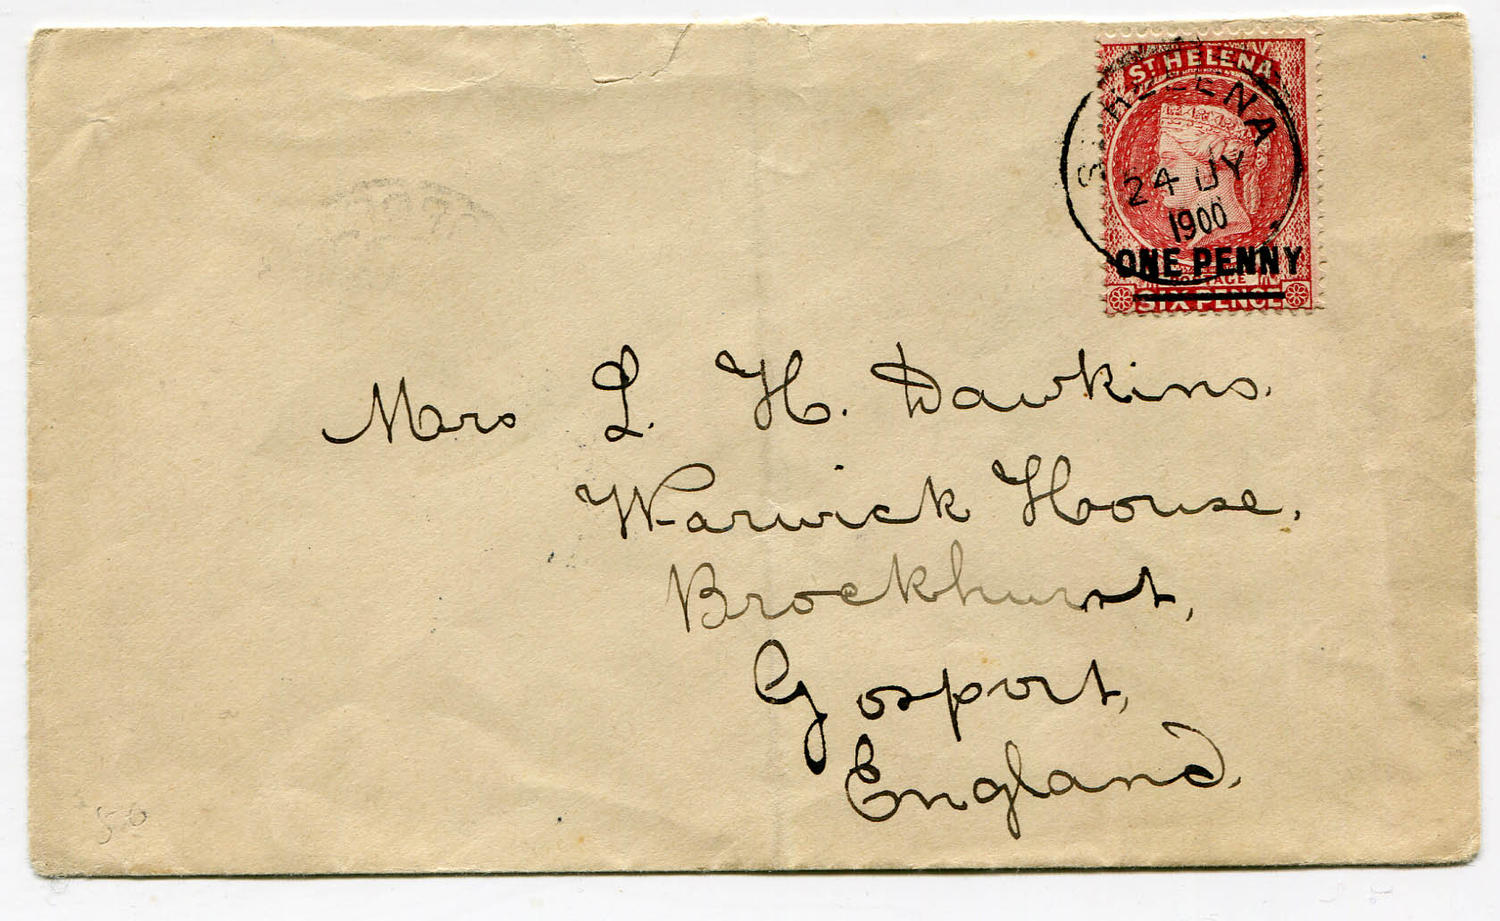 ST HELENA
ST. HELENA
24 JY
1900
ONE PENNY
POSTAGE
SIX PENCE
Mrs L. H. Dawkins.
Warwick House,
Brockhurst,
Gosport,
England.
50